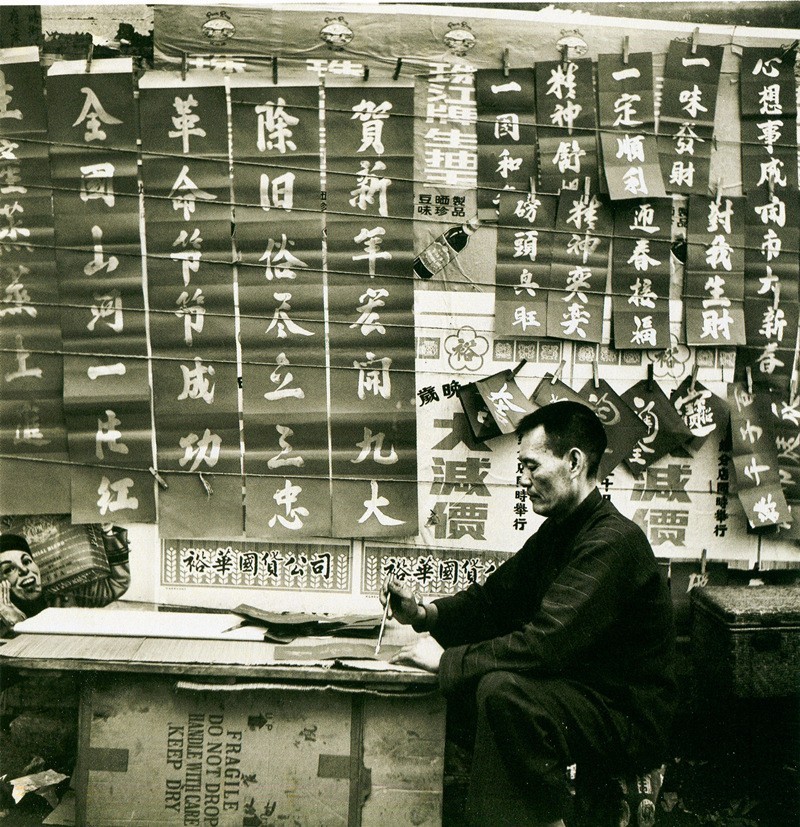 賀新年宏開九大
除旧俗尽立三忠
革命节节成功
全国山河一片红
珠
珠
珠江牌生抽王
豆晒製
味珍品
一國和
精神舒
一定順利
一味發財
心想事成
市大新春
頭興旺
精神奕奕
迎春接福
對我生財
裕
歲晚
大減價
大減價
同時舉行
裕華國貨公司
裕華國貨公司
UP
FRAGILE
DO NOT DROP
HANDLE WITH CARE
KEEP DRY